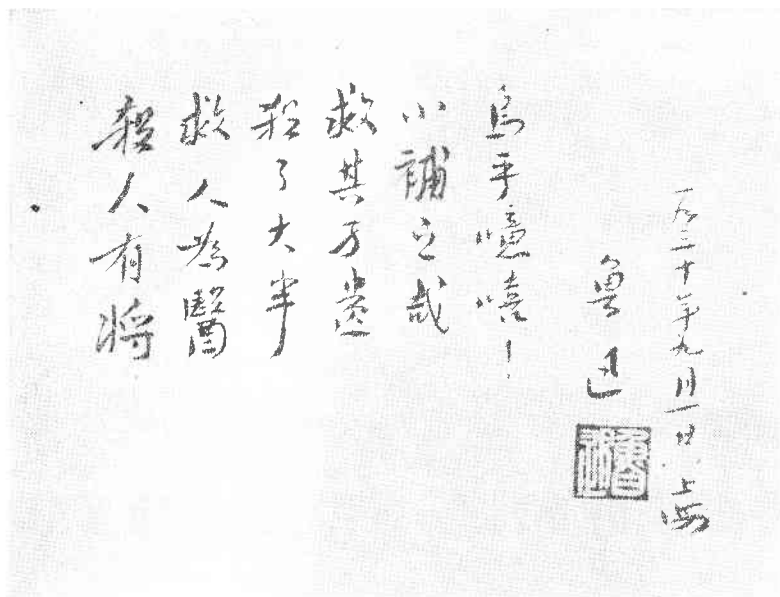 殺人有将
救人為醫
殺了大半
救其孑遺
小補之哉
烏乎噫嘻！
魯迅
一九三十年九月一日，上海